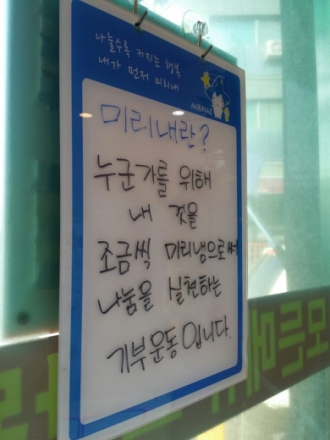 나눌수록 커지는 행복
내가 먼저 미리내
MIRINAE
미리내란?
누군가를 위해
내 것을
조금씩 미리냄으로써
나눔을 실현하는
기부운동입니다.